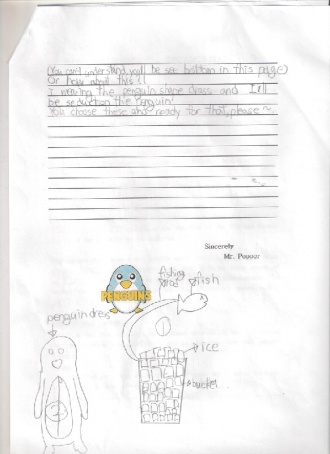 (You can't understand you'll be see bottom in this page)
Or how about this!!
I wearing the penguin shape dress and I'll
be seduction the Penguin!
You choose these and ready for that, please~
Sincerely
Mr. Popper
fishing
rod
fish
PENGUINS
penguin dress
ice
bucket